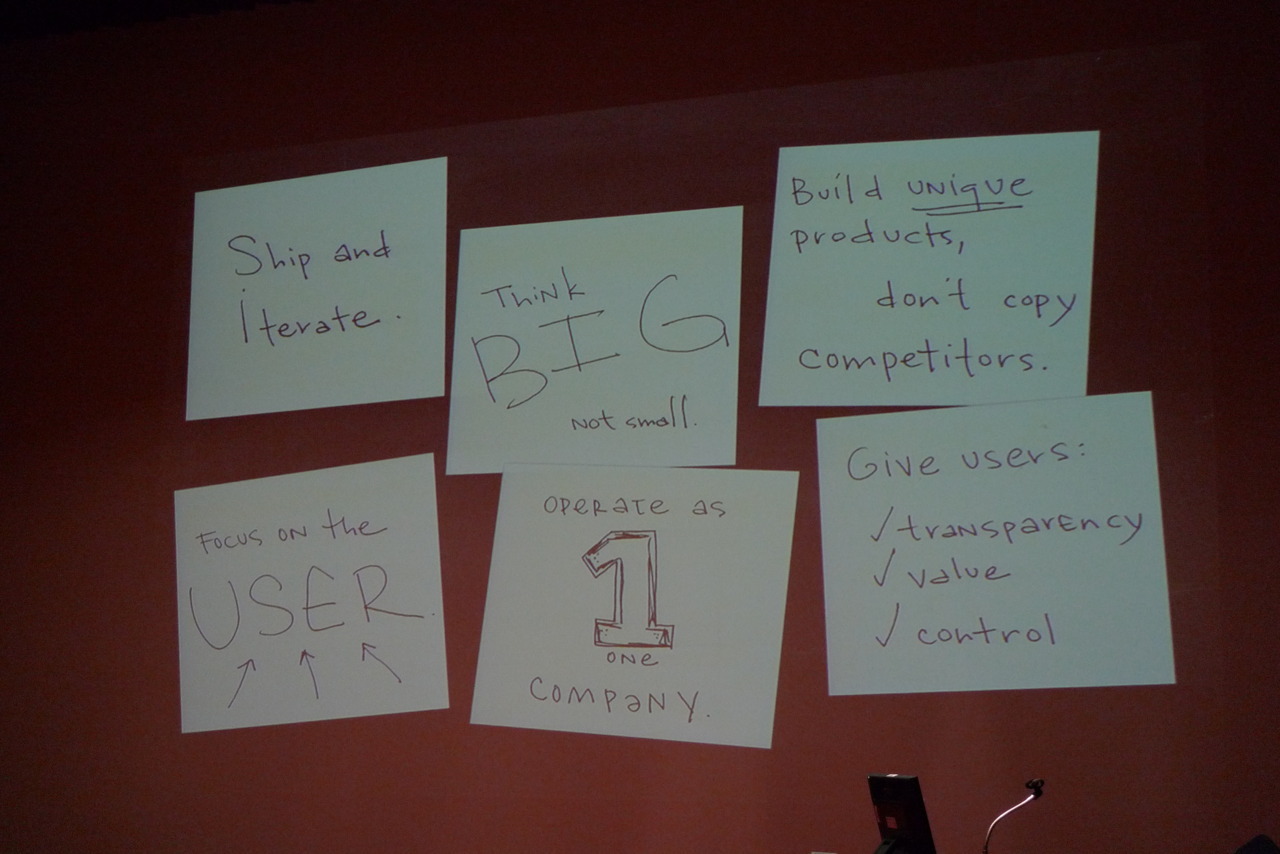 Ship and
Iterate.
Think
BIG
not small.
Build unique
products,
don't copy
competitors.
Focus on the
USER.
Operate as
1
one
company.
Give users:
✓ transparency
✓ value
✓ control